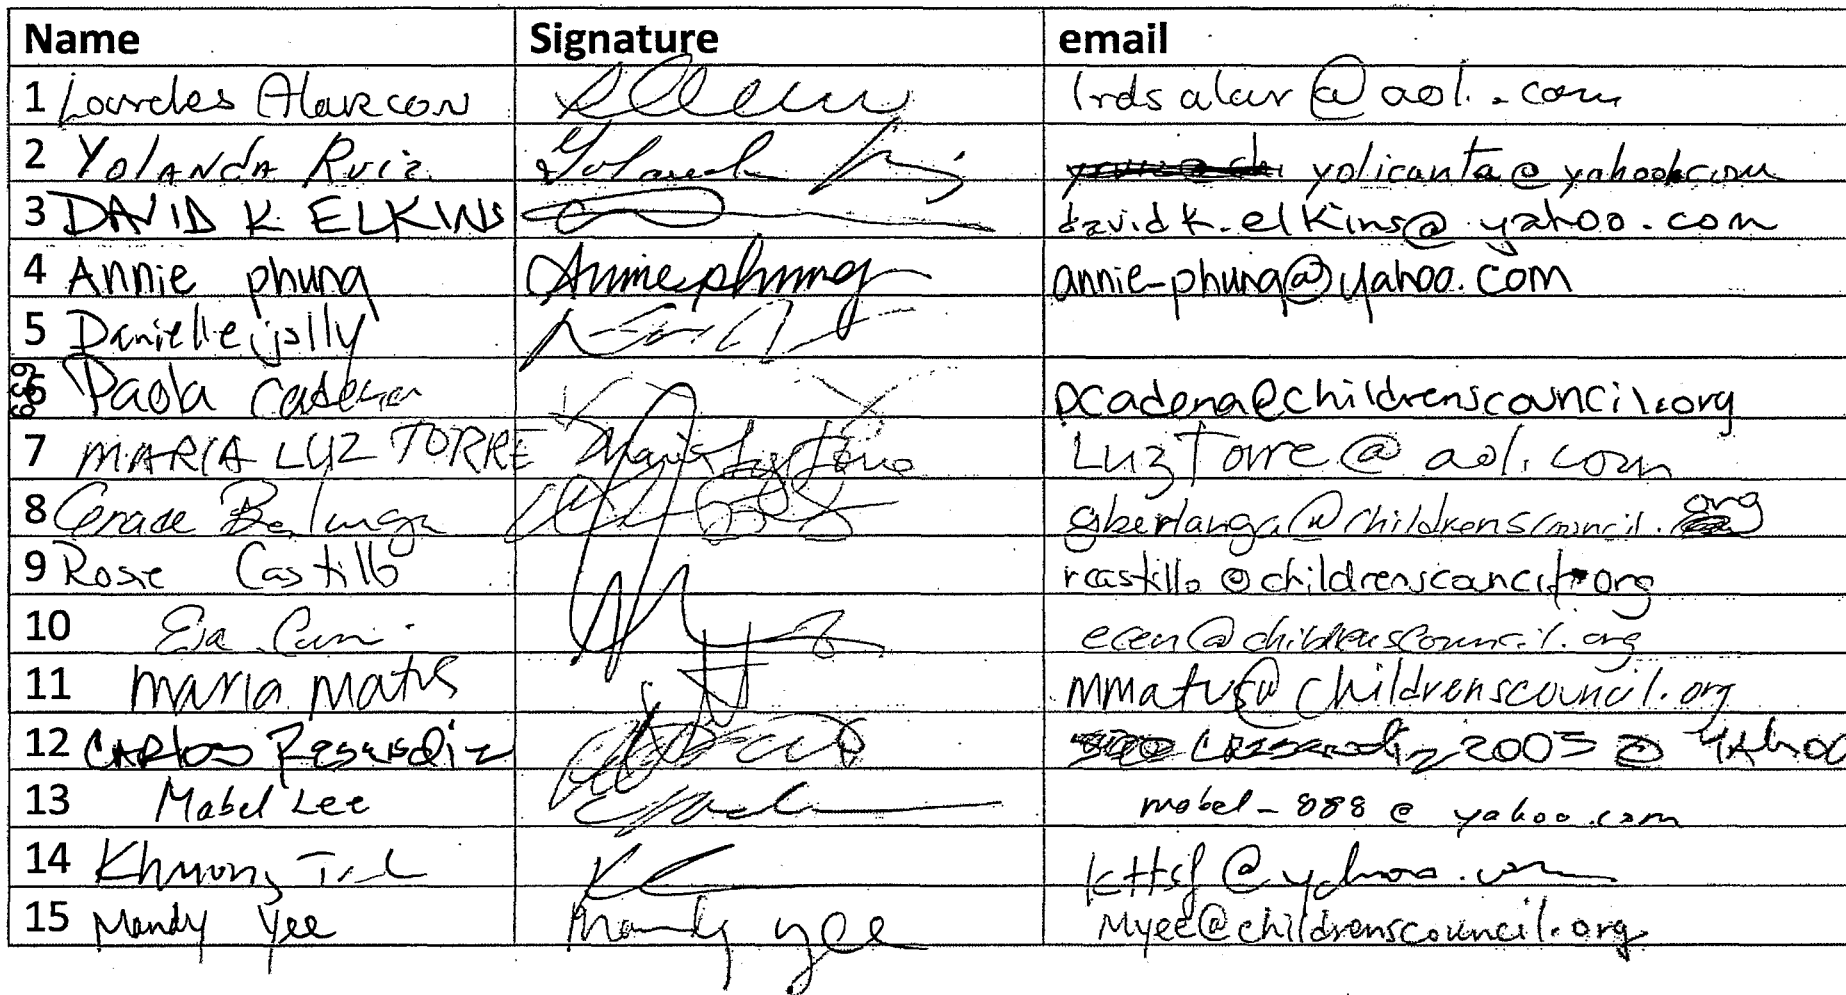 Name Signature email
1 Lourdes Alarcon lrdsalar@aol.com
2 Yolanda Ruiz yolicanta@yahoo.com
3 DAVID K ELKINS davidk.elkins@yahoo.com
4 Annie phung Annie phung annie-phung@yahoo.com
5 Danielle jolly
6 Paola Cadena pcadena@childrenscouncil.org
659
7 MARIA LUZ TORRE Maria Luz Torre LuzTorre@aol.com
8 Grace Berlanga gberlanga@childrenscouncil.org
9 Rosie Castillo rcastillo@childrenscouncil.org
10 ecen@childrenscouncil.org
11 Maria Matus mmatus@childrenscouncil.org
12 CARlos Resendiz 2005@YAhoo
13 Mabel Lee mabel-888@yahoo.com
14 Khuong kttsf@yahoo.com
15 Mandy Yee Mandy yee Myee@childrenscouncil.org